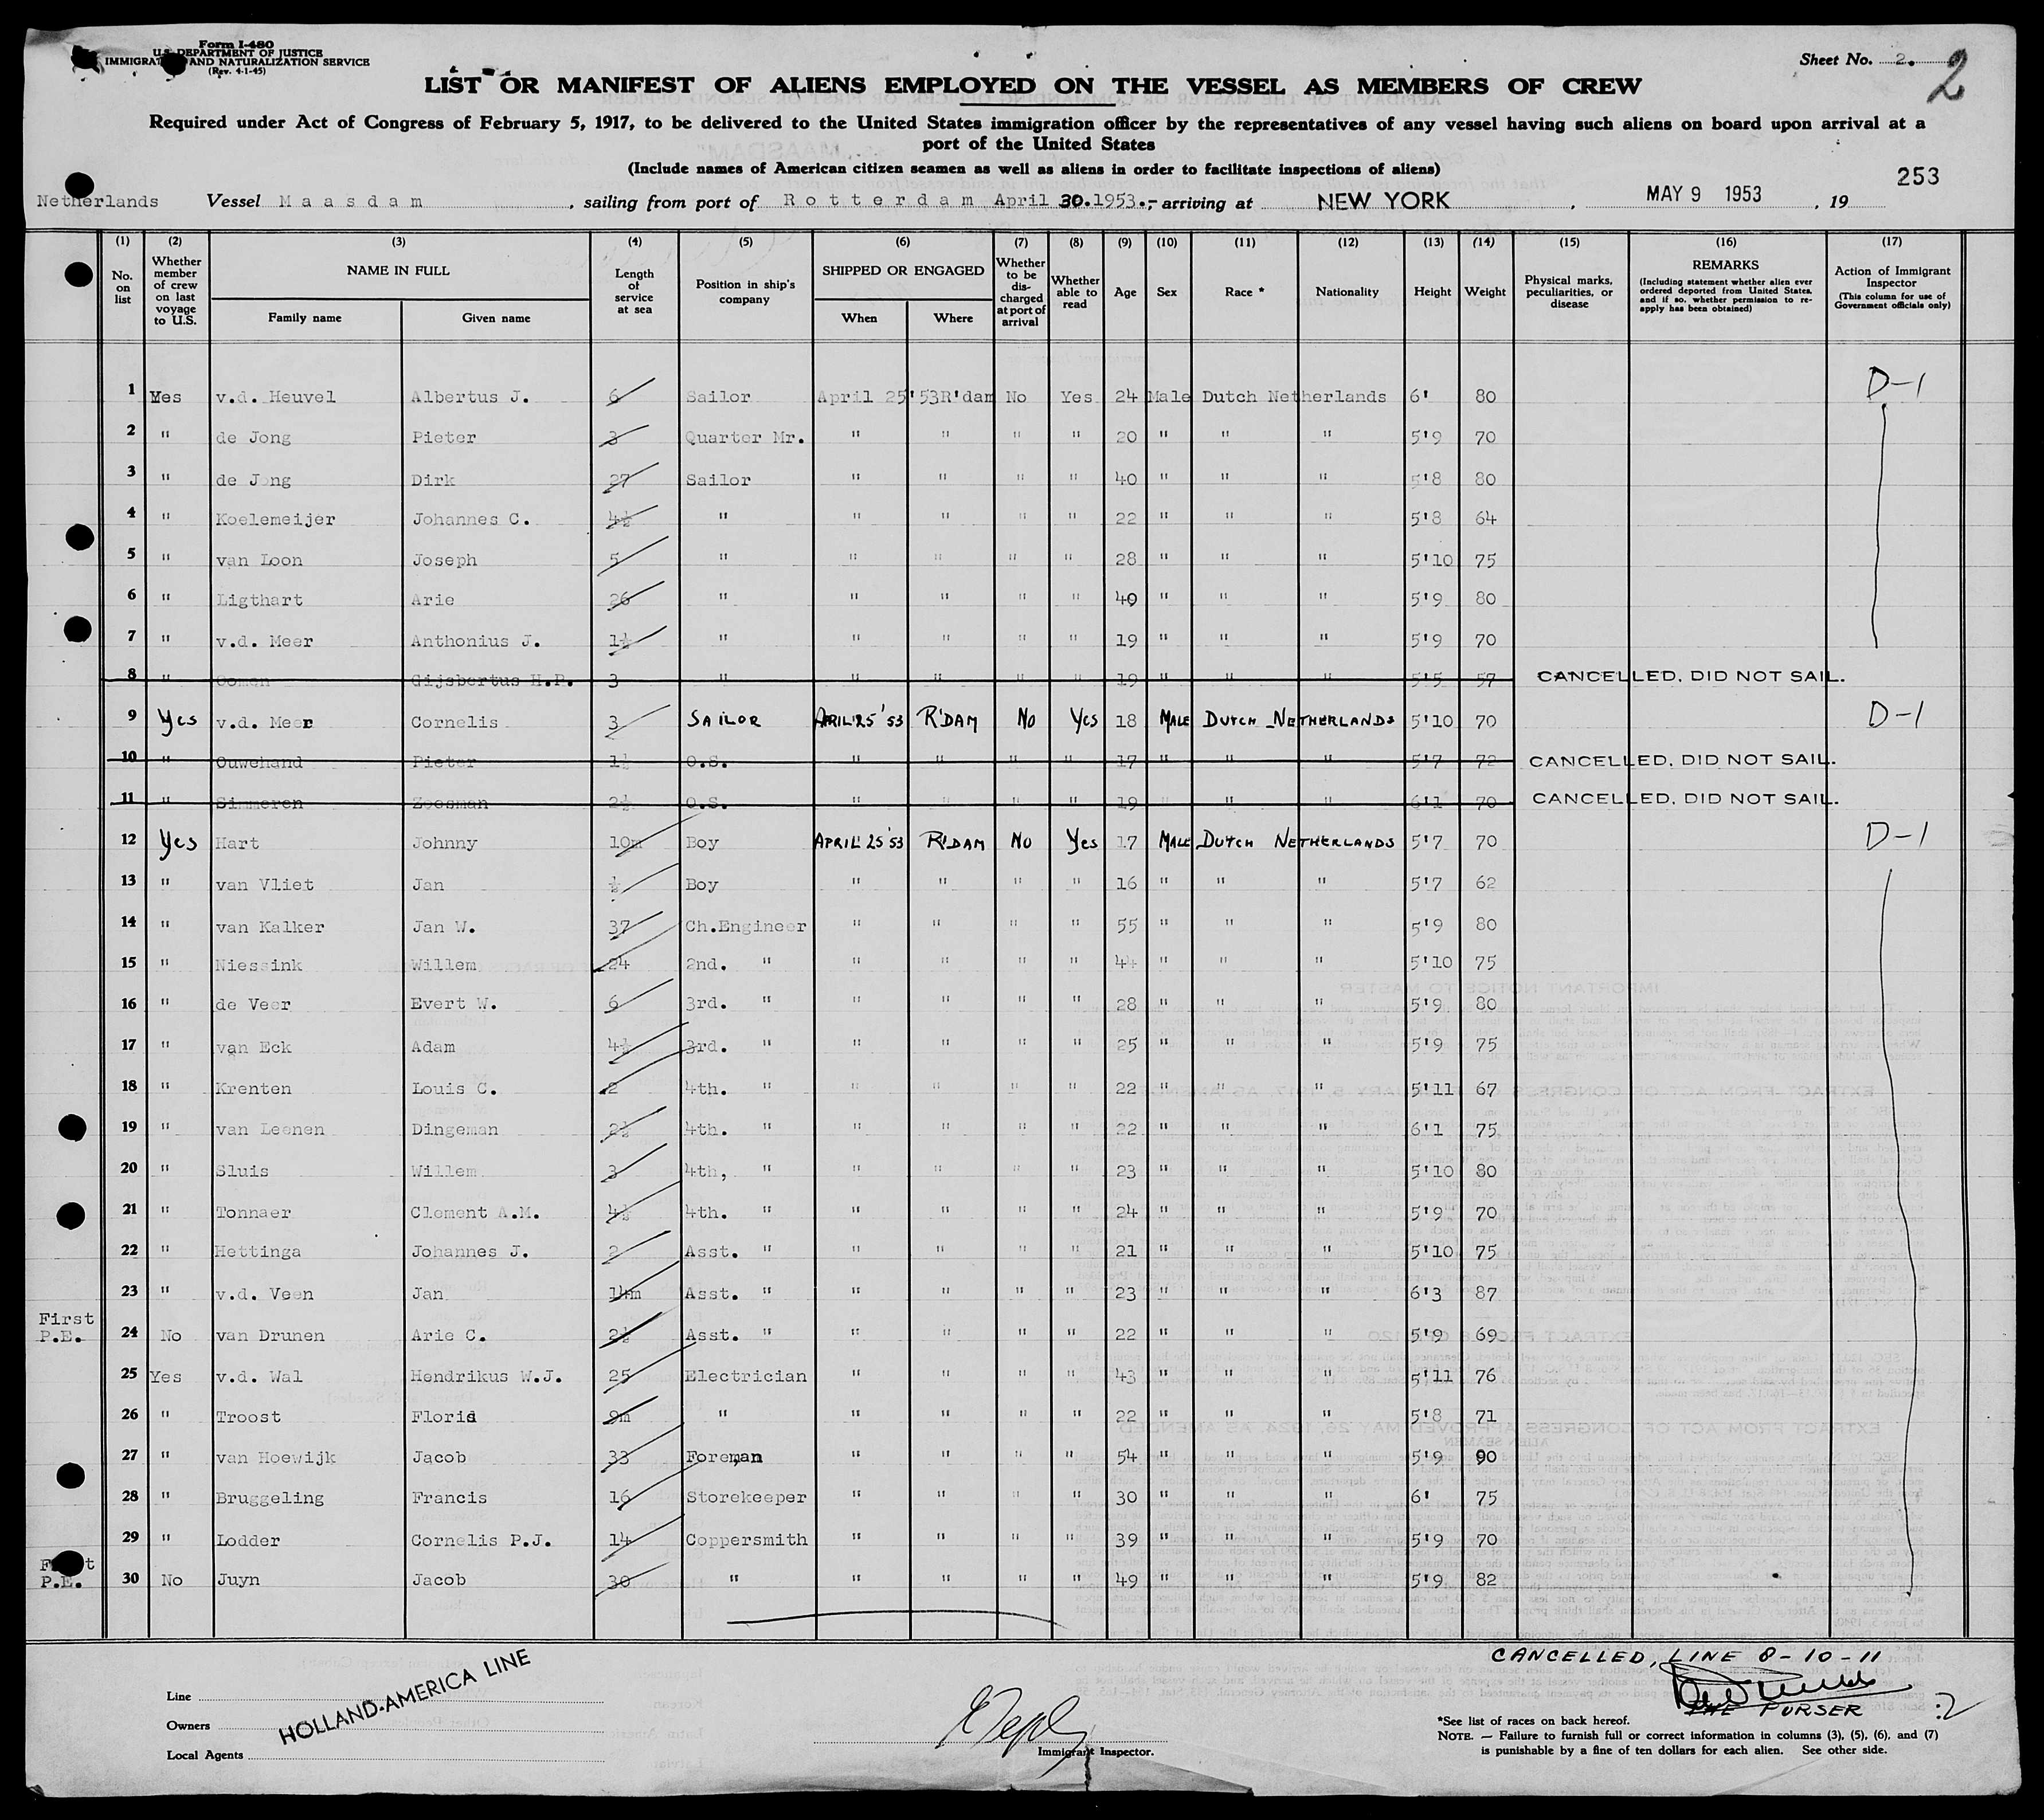 Form I-480
U.S. DEPARTMENT OF JUSTICE
IMMIGRATION AND NATURALIZATION SERVICE
(Rev. 4-1-45)
Sheet No. 2. 2
LIST OR MANIFEST OF ALIENS EMPLOYED ON THE VESSEL AS MEMBERS OF CREW
Required under Act of Congress of February 5, 1917, to be delivered to the United States immigration officer by the representatives of any vessel having such aliens on board upon arrival at a
port of the United States
(Include names of American citizen seamen as well as aliens in order to facilitate inspections of aliens)
253
Netherlands Vessel Maasdam, sailing from port of Rotterdam April 30.1953.-, arriving at NEW YORK, MAY 9 1953, 19
(1) (2) (3) (4) (5) (6) (7) (8) (9) (10) (11) (12) (13) (14) (15) (16) (17)
No. on list
Whether member of crew on last voyage to U.S.
NAME IN FULL
Family name Given name
Length of service at sea
Position in ship's company
SHIPPED OR ENGAGED
When Where
Whether to be discharged at port of arrival
Whether able to read
Age
Sex
Race *
Nationality
Height
Weight
Physical marks, peculiarities, or disease
REMARKS
(Including statement whether alien ever ordered deported from United States, and if so, whether permission to re-apply has been obtained)
Action of Immigrant Inspector
(This column for use of Government officials only)
1 Yes v.d. Heuvel Albertus J. 6 Sailor April 25'53 R'dam No Yes 24 Male Dutch Netherlands 6' 80 D-1
2 " de Jong Pieter 3 Quarter Mr. " " " " 20 " " " 5'9 70
3 " de Jong Dirk 27 Sailor " " " " 40 " " " 5'8 80
4 " Koelemeijer Johannes C. 4½ " " " " " 22 " " " 5'8 64
5 " van Loon Joseph 5 " " " " " 28 " " " 5'10 75
6 " Ligthart Arie 26 " " " " " 40 " " " 5'9 80
7 " v.d. Meer Anthonius J. 1½ " " " " " 19 " " " 5'9 70
8 " Oomen Gijsbertus H.P. 3 " " " " " 19 " " " 5'5 57 CANCELLED, DID NOT SAIL.
9 Yes v.d. Meer Cornelis 3 SAILOR APRIL'25'53 R'DAM No Yes 18 MALE DUTCH NETHERLANDS 5'10 70 D-1
10 " Ouwehand Pieter 1½ O.S. " " " " 17 " " " 5'7 72 CANCELLED, DID NOT SAIL.
11 " Simmeren Zeesman 2½ O.S. " " " " 19 " " " 6'1 70 CANCELLED, DID NOT SAIL.
12 Yes Hart Johnny 10m Boy APRIL'25'53 R'DAM No Yes 17 MALE DUTCH NETHERLANDS 5'7 70 D-1
13 " van Vliet Jan ½ Boy " " " " 16 " " " 5'7 62
14 " van Kalker Jan W. 37 Ch.Engineer " " " " 55 " " " 5'9 80
15 " Niessink Willem 24 2nd. " " " " " 44 " " " 5'10 75
16 " de Veer Evert W. 6 3rd. " " " " " 28 " " " 5'9 80
17 " van Eck Adam 4½ 3rd. " " " " " 25 " " " 5'9 75
18 " Krenten Louis C. 2 4th. " " " " " 22 " " " 5'11 67
19 " van Leenen Dingeman 2½ 4th. " " " " " 22 " " " 6'1 75
20 " Sluis Willem 3 4th, " " " " " 23 " " " 5'10 80
21 " Tonnaer Clement A.M. 4½ 4th. " " " " " 24 " " " 5'9 70
22 " Hettinga Johannes J. 2 Asst. " " " " " 21 " " " 5'10 75
23 " v.d. Veen Jan 14m Asst. " " " " " 23 " " " 6'3 87
First P.E. 24 No van Drunen Arie C. 2½ Asst. " " " " " 22 " " " 5'9 69
25 Yes v.d. Wal Hendrikus W.J. 25 Electrician " " " " 43 " " " 5'11 76
26 " Troost Floris 9m " " " " " 22 " " " 5'8 71
27 " van Hoewijk Jacob 33 Foreman " " " " 54 " " " 5'9 90
28 " Bruggeling Francis 16 Storekeeper " " " " 30 " " " 6' 75
29 " Lodder Cornelis P.J. 14 Coppersmith " " " " 39 " " " 5'9 70
First P.E. 30 No Juyn Jacob 30 " " " " " 49 " " " 5'9 82
CANCELLED, LINE 8-10-11
THE PURSER :2
Line
Owners HOLLAND-AMERICA LINE
Local Agents
Immigrant Inspector.
*See list of races on back hereof.
NOTE. — Failure to furnish full or correct information in columns (3), (5), (6), and (7)
is punishable by a fine of ten dollars for each alien. See other side.